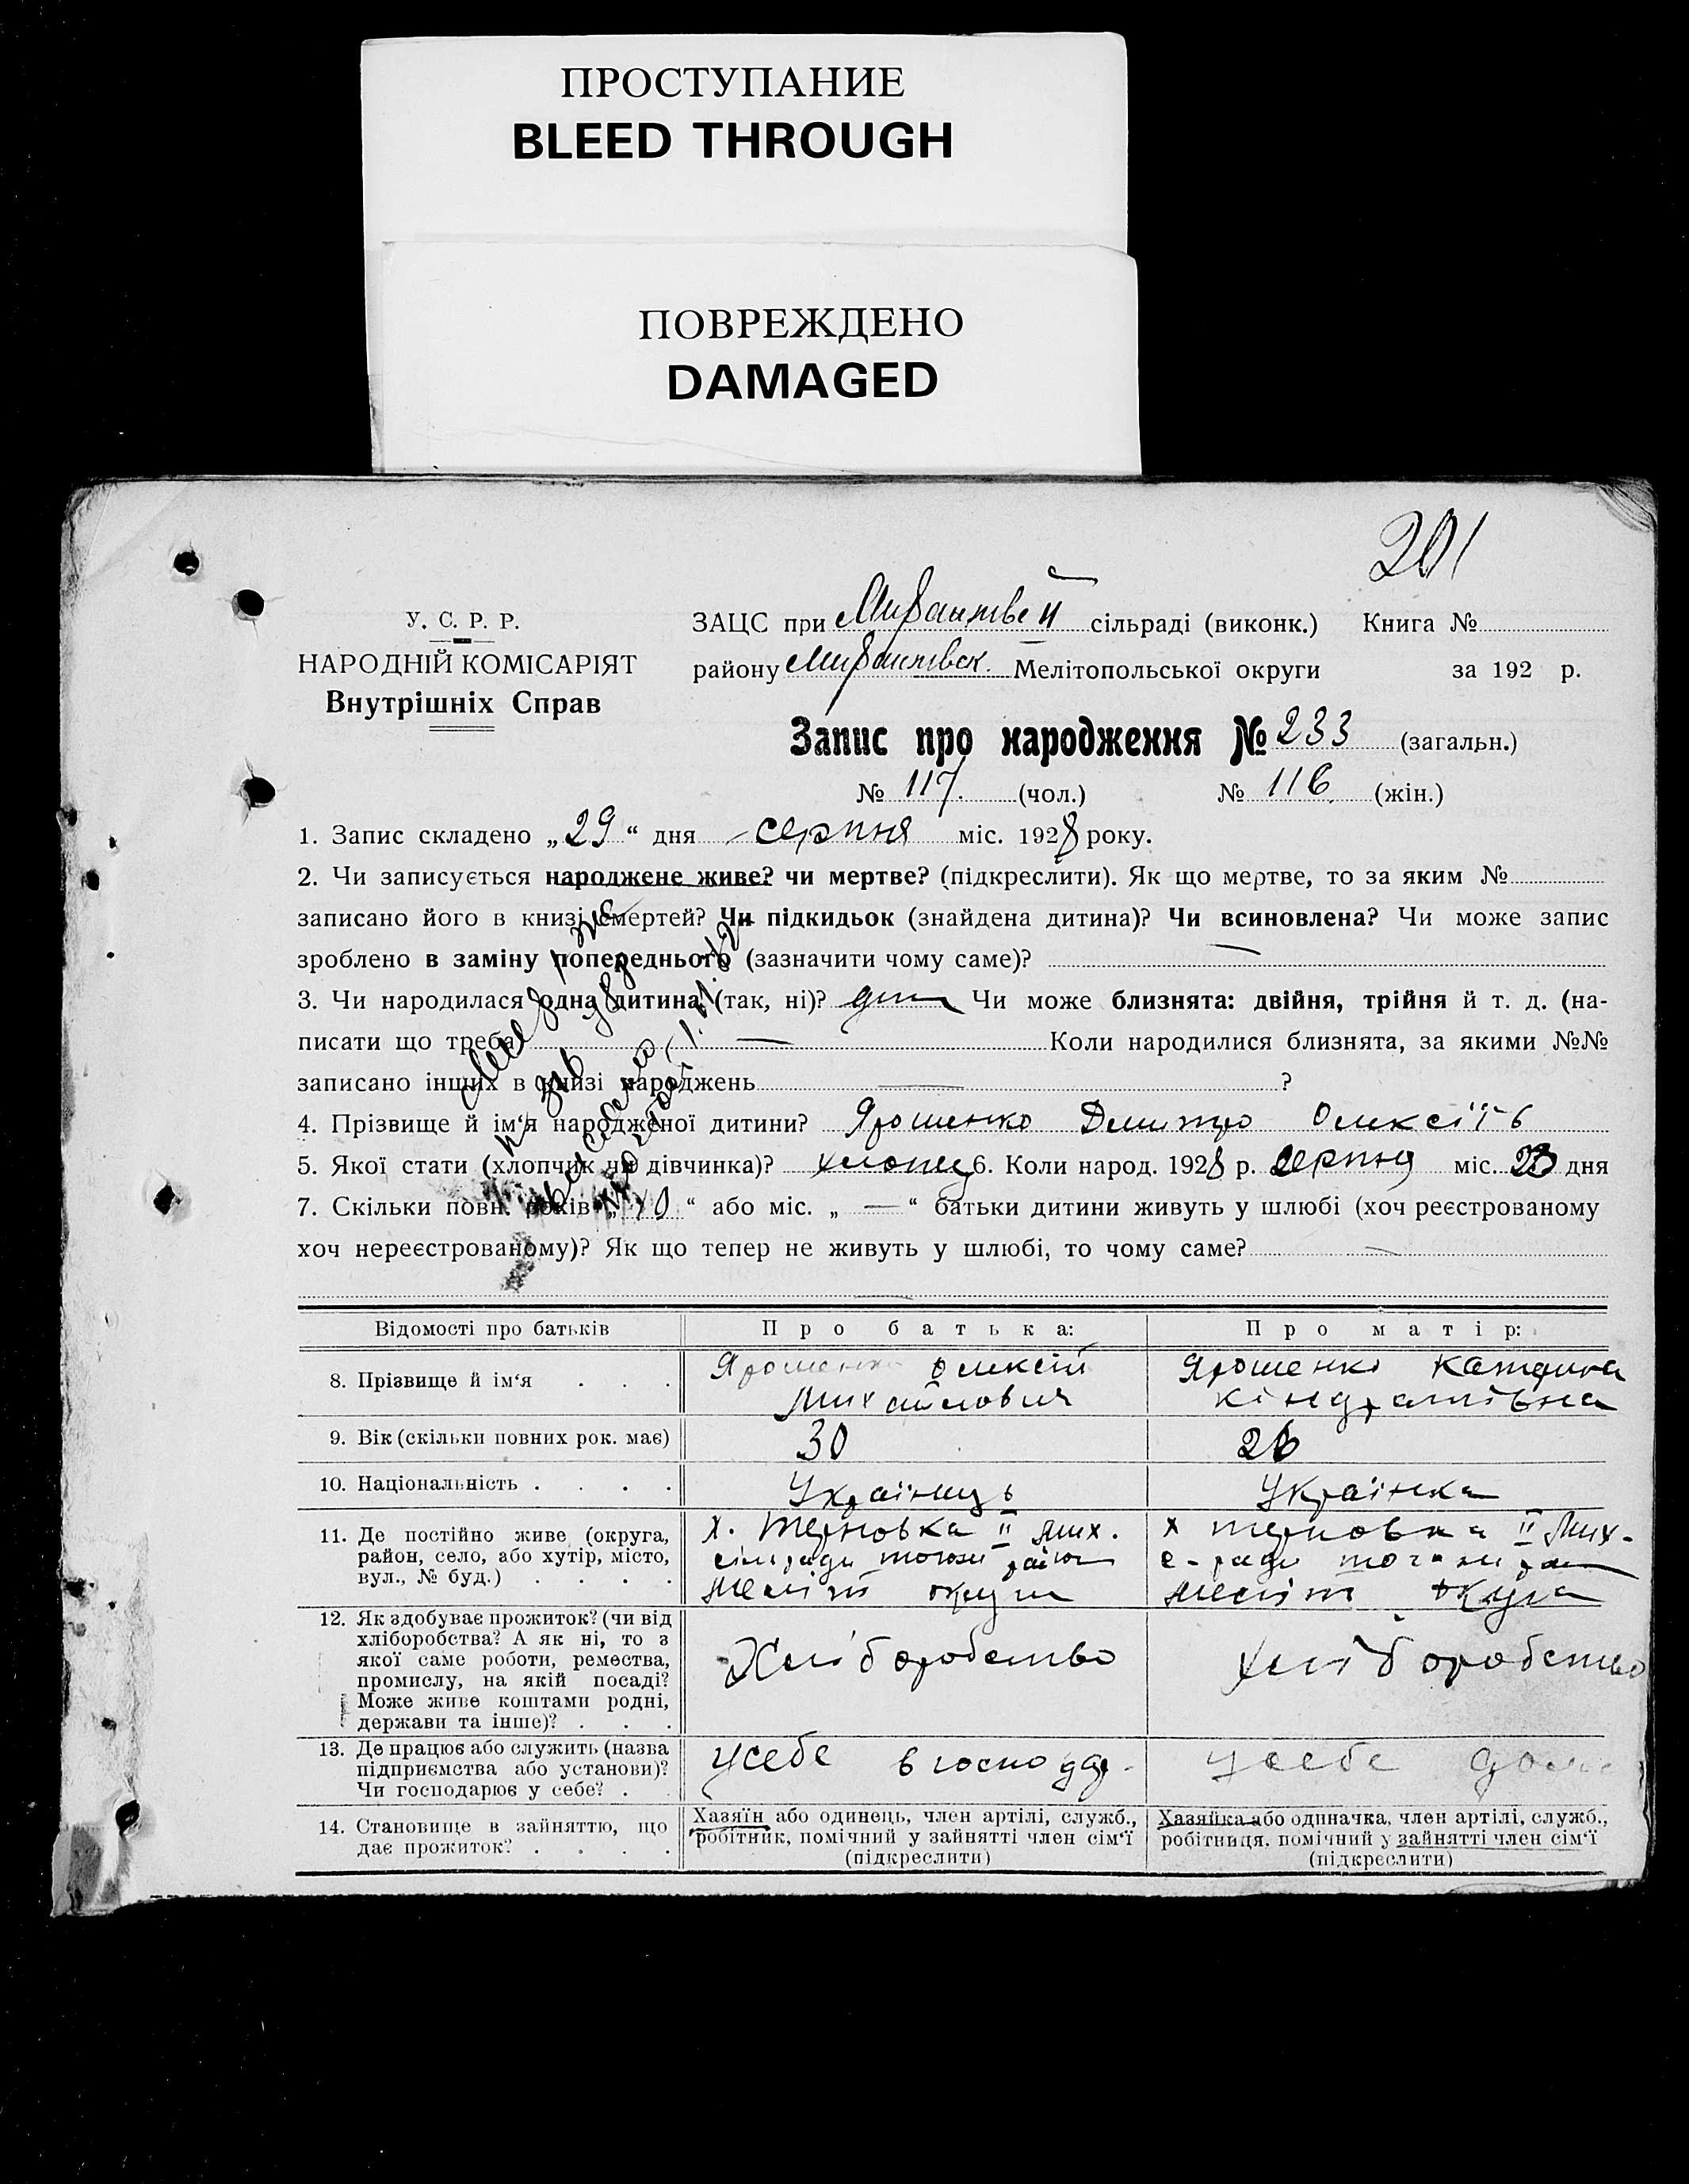 ПРОСТУПАНИЕ
BLEED THROUGH
ПОВРЕЖДЕНО
DAMAGED
201
У. С. Р. Р.
НАРОДНІЙ КОМІСАРІЯТ
Внутрішніх Справ
ЗАЦС при II сільраді (виконк.) Книга №
району Мелітопольської округи за 192 р.
Запис про народження № 233 (загальн.)
№ 117 (чол.) № 116 (жін.)
1. Запис складено „29“ дня серпня міс. 1928 року.
2. Чи записується народжене живе? чи мертве? (підкреслити). Як що мертве, то за яким №
записано його в книзі смертей? Чи підкидьок (знайдена дитина)? Чи всиновлена? Чи може запис
зроблено в заміну попереднього (зазначити чому саме)? —
3. Чи народилася одна дитина (так, ні)? Чи може близнята: двійня, трійня й т. д. (на-
писати що треба) — Коли народилися близнята, за якими №№
записано інших в книзі народжень — ?
4. Прізвище й ім‘я народженої дитини? Ярошенко Дмитро Олексіїв
5. Якої стати (хлопчик чи дівчинка)? хлопец 6. Коли народ. 1928 р. серпня міс. 23 дня
7. Скільки повн. років „10“ або міс. „—“ батьки дитини живуть у шлюбі (хоч реєстрованому
хоч нереєстрованому)? Як що тепер не живуть у шлюбі, то чому саме? —
Відомості про батьків Про батька: Про матір:
8. Прізвище й ім‘я . . . Ярошенко Олексій Ярошенко Катерина
Михайлович Кіндратівна
9. Вік (скільки повних рок. має) 30 26
10. Національність . . . . Українець Українка
11. Де постійно живе (округа, х. Терновка II Мих. х Терновка II Мих-
район, село, або хутір, місто, сільради того ж район с-ради того ж рай
вул., № буд.) . . . . Меліт округи Меліт округа
12. Як здобуває прожиток? (чи від
хліборобства? А як ні, то з
якої саме роботи, ремества, Хліборобство хліборобство
промислу, на якій посаді?
Може живе коштами родні,
держави та інше)? . . .
13. Де працює або служить (назва усебе в господар- усебе дома
підприємства або установи)?
Чи господарює у себе? .
14. Становище в зайняттю, що Хазяїн або одинець, член артілі, служб., Хазяйка або одиначка, член артілі, служб.,
дає прожиток? . . . . робітник, помічний у зайнятті член сім‘ї робітниця, помічний у зайнятті член сім‘ї
(підкреслити) (підкреслити)